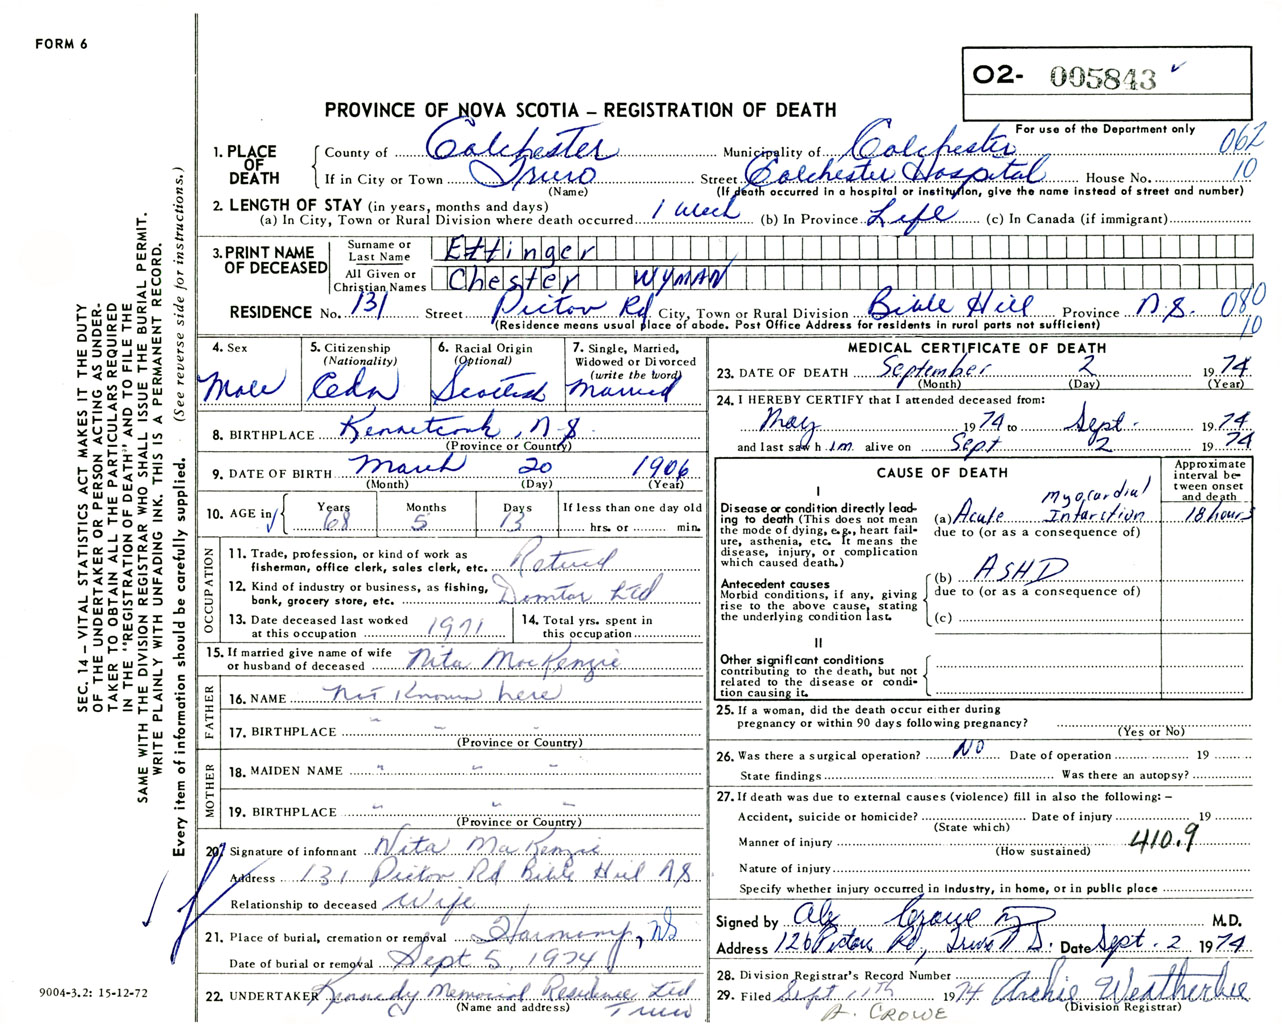 FORM 6
O2- 005843
PROVINCE OF NOVA SCOTIA – REGISTRATION OF DEATH
For use of the Department only
1. PLACE OF DEATH
County of Colchester Municipality of Colchester 062
If in City or Town Truro Street Colchester Hospital House No. 10
(Name) (If death occurred in a hospital or institution, give the name instead of street and number)
2. LENGTH OF STAY (in years, months and days)
(a) In City, Town or Rural Division where death occurred 1 Week (b) In Province Life (c) In Canada (if immigrant)
3. PRINT NAME OF DECEASED
Surname or Last Name Ettinger
All Given or Christian Names Chester WYMAN
RESIDENCE No. 131 Street Pictou Rd City, Town or Rural Division Bible Hill Province N.S. 080
10
(Residence means usual place of abode. Post Office Address for residents in rural parts not sufficient)
4. Sex Male
5. Citizenship (Nationality) Cdn
6. Racial Origin (Optional) Scottish
7. Single, Married, Widowed or Divorced (write the word) Married
8. BIRTHPLACE Kennetcook, N.S
(Province or Country)
9. DATE OF BIRTH March 20 1906
(Month) (Day) (Year)
10. AGE in Years 68 Months 5 Days 13 If less than one day old hrs. or min.
OCCUPATION
11. Trade, profession, or kind of work as fisherman, office clerk, sales clerk, etc. Retired
12. Kind of industry or business, as fishing, bank, grocery store, etc. Domtar Ltd
13. Date deceased last worked at this occupation 1971
14. Total yrs. spent in this occupation
15. If married give name of wife or husband of deceased Nita MacKenzie
FATHER
16. NAME Not Known here
17. BIRTHPLACE " " "
(Province or Country)
MOTHER
18. MAIDEN NAME " " "
19. BIRTHPLACE " " "
(Province or Country)
20. Signature of informant Nita MacKenzie
Address 131 Pictou Rd Bible Hill N S
Relationship to deceased Wife
21. Place of burial, cremation or removal Harmony, NS
Date of burial or removal Sept 5, 1974
22. UNDERTAKER Kennedy Memorial Residence Ltd
(Name and address) Truro
MEDICAL CERTIFICATE OF DEATH
23. DATE OF DEATH September 2 1974
(Month) (Day) (Year)
24. I HEREBY CERTIFY that I attended deceased from:
May 1974 to Sept. 1974
and last saw him alive on Sept 2 1974
CAUSE OF DEATH
Approximate interval between onset and death
I
Disease or condition directly leading to death (This does not mean the mode of dying, e.g., heart failure, asthenia, etc. It means the disease, injury, or complication which caused death.)
(a) Acute myocardial Infarction 18 hours
due to (or as a consequence of)
Antecedent causes
Morbid conditions, if any, giving rise to the above cause, stating the underlying condition last.
(b) ASHD
due to (or as a consequence of)
(c)
II
Other significant conditions contributing to the death, but not related to the disease or condition causing it.
25. If a woman, did the death occur either during pregnancy or within 90 days following pregnancy?
(Yes or No)
26. Was there a surgical operation? No Date of operation 19
State findings Was there an autopsy?
27. If death was due to external causes (violence) fill in also the following: –
Accident, suicide or homicide? Date of injury 19
(State which)
Manner of injury 410.9
(How sustained)
Nature of injury
Specify whether injury occurred in industry, in home, or in public place
Signed by Alex Crowe M.D.
Address 126 Pictou Rd, Truro N S. Date Sept. 2 1974
28. Division Registrar's Record Number
29. Filed Sept 11th 1974 Archie Weatherbie
(Division Registrar)
A. CROWE
SEC. 14 – VITAL STATISTICS ACT MAKES IT THE DUTY
OF THE UNDERTAKER OR PERSON ACTING AS UNDER-
TAKER TO OBTAIN ALL THE PARTICULARS REQUIRED
IN THE "REGISTRATION OF DEATH" AND TO FILE THE
SAME WITH THE DIVISION REGISTRAR WHO SHALL ISSUE THE BURIAL PERMIT.
WRITE PLAINLY WITH UNFADING INK. THIS IS A PERMANENT RECORD.
Every item of information should be carefully supplied. (See reverse side for instructions.)
9004-3.2: 15-12-72